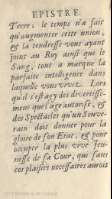 EPISTRE.
Terre; le temps n'a fait
qu'augmenter cette union,
& la tendresse vous ayant
joint au Roy ainsi que le
Sang, tout a marqué la
parfaite intelligence dans
laquelle vous vivez. Lors
qu'il s'est agy des divertisse-
mens que l'age autorise, &
des Spectacles qu'un Souve-
rain doit donner pour la
gloire de son Estat, & pour
occuper la plus vive Jeu-
nesse de sa Cour, que sans
ces plaisirs necessaires auroit